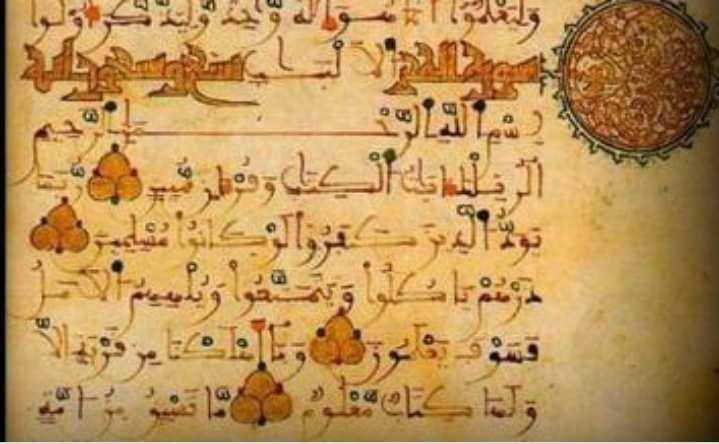 وَلِيَعْلَمُوا أَنَّمَا هُوَ إِلَهٌ وَاحِدٌ وَلِيَذَّكَّرَ أُولُوا
سورة الحجر الْأَلْبَابِ تسع وتسعون آية
بِسْمِ اللَّهِ الرَّحْمَنِ الرَّحِيمِ
الر تِلْكَ آيَاتُ الْكِتَابِ وَقُرْآنٍ مُبِينٍ رُبَمَا
يَوَدُّ الَّذِينَ كَفَرُوا لَوْ كَانُوا مُسْلِمِينَ
ذَرْهُمْ يَأْكُلُوا وَيَتَمَتَّعُوا وَيُلْهِهِمُ الْأَمَلُ
فَسَوْفَ يَعْلَمُونَ وَمَا أَهْلَكْنَا مِنْ قَرْيَةٍ إِلَّا
وَلَهَا كِتَابٌ مَعْلُومٌ مَا تَسْبِقُ مِنْ أُمَّةٍ